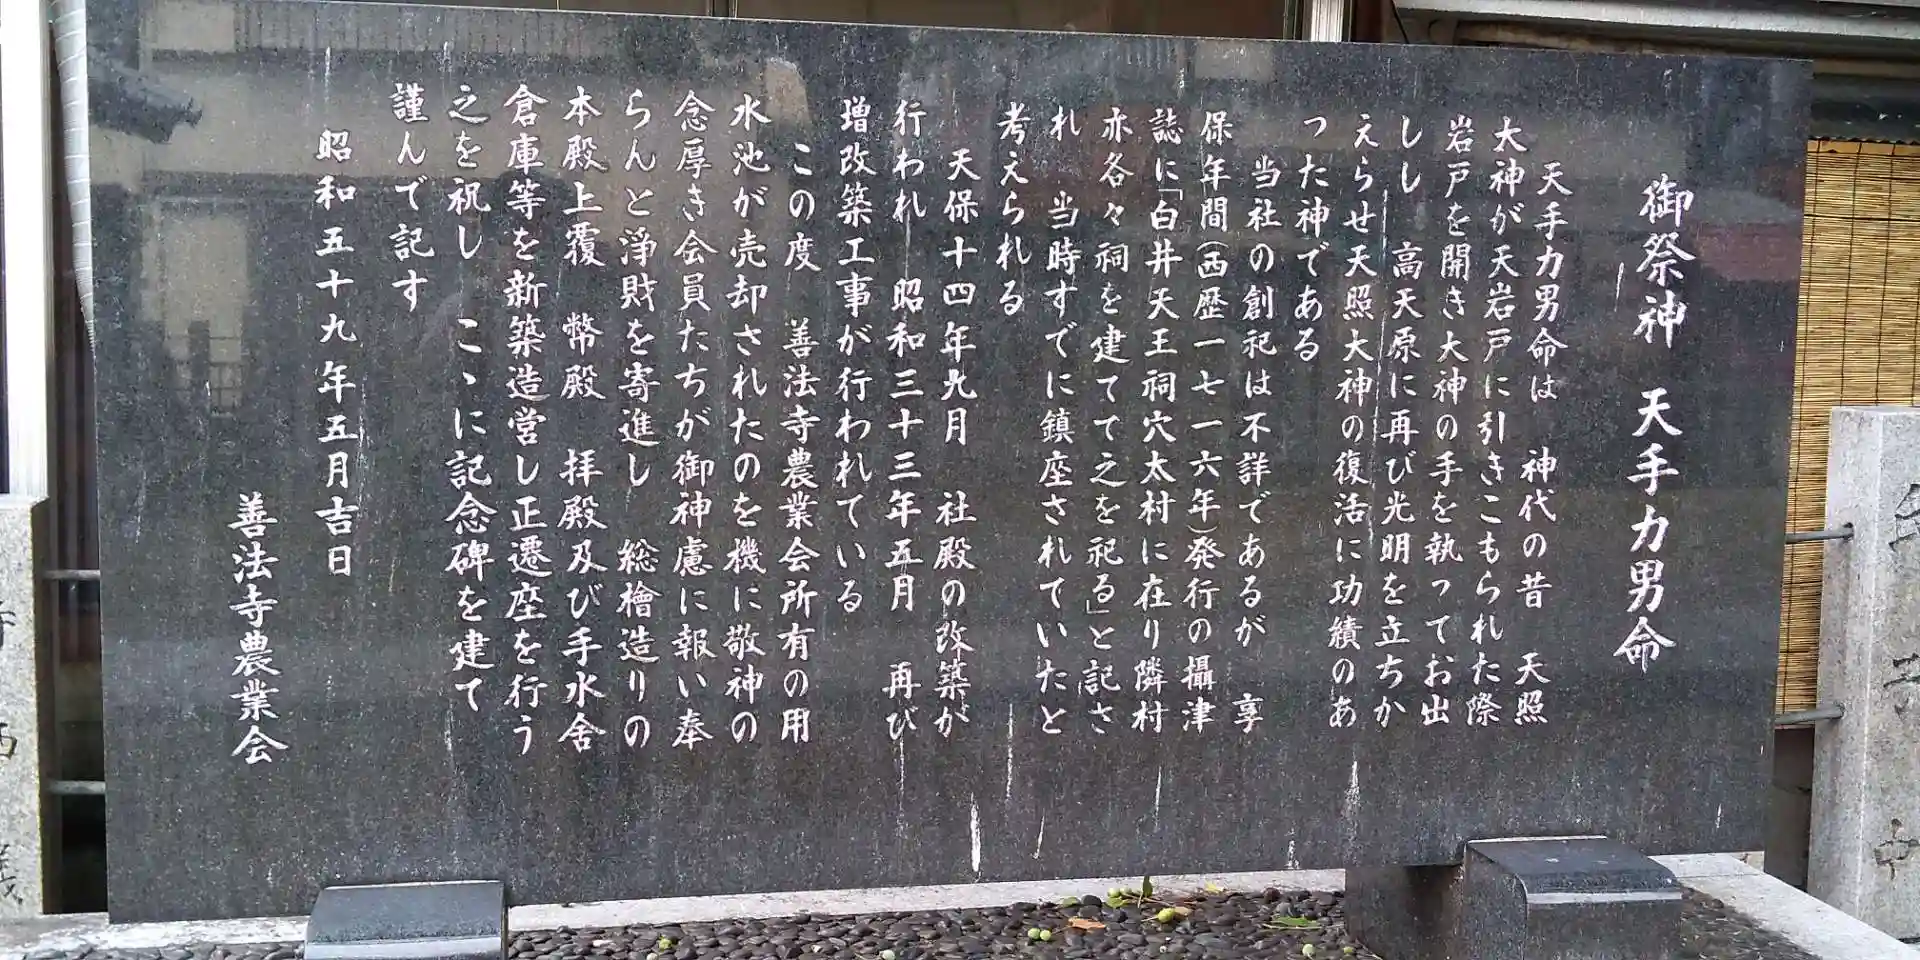 御祭神 天手力男命
天手力男命は 神代の昔 天照
大神が天岩戸に引きこもられた際
岩戸を開き大神の手を執ってお出
しし 高天原に再び光明を立ちか
えらせ天照大神の復活に功績のあ
った神である
当社の創祀は不詳であるが 享
保年間(西歴一七一六年)発行の攝津
誌に「白井天王祠穴太村に在り隣村
亦各々祠を建てて之を祀る」と記さ
れ 当時すでに鎮座されていたと
考えられる
天保十四年九月 社殿の改築が
行われ 昭和三十三年五月 再び
増改築工事が行われている
この度 善法寺農業会所有の用
水池が売却されたのを機に敬神の
念厚き会員たちが御神慮に報い奉
らんと浄財を寄進し 総檜造りの
本殿上覆 幣殿 拝殿及び手水舎
倉庫等を新築造営し正遷座を行う
之を祝し こゝに記念碑を建て
謹んで記す
昭和五十九年五月吉日
善法寺農業会
中